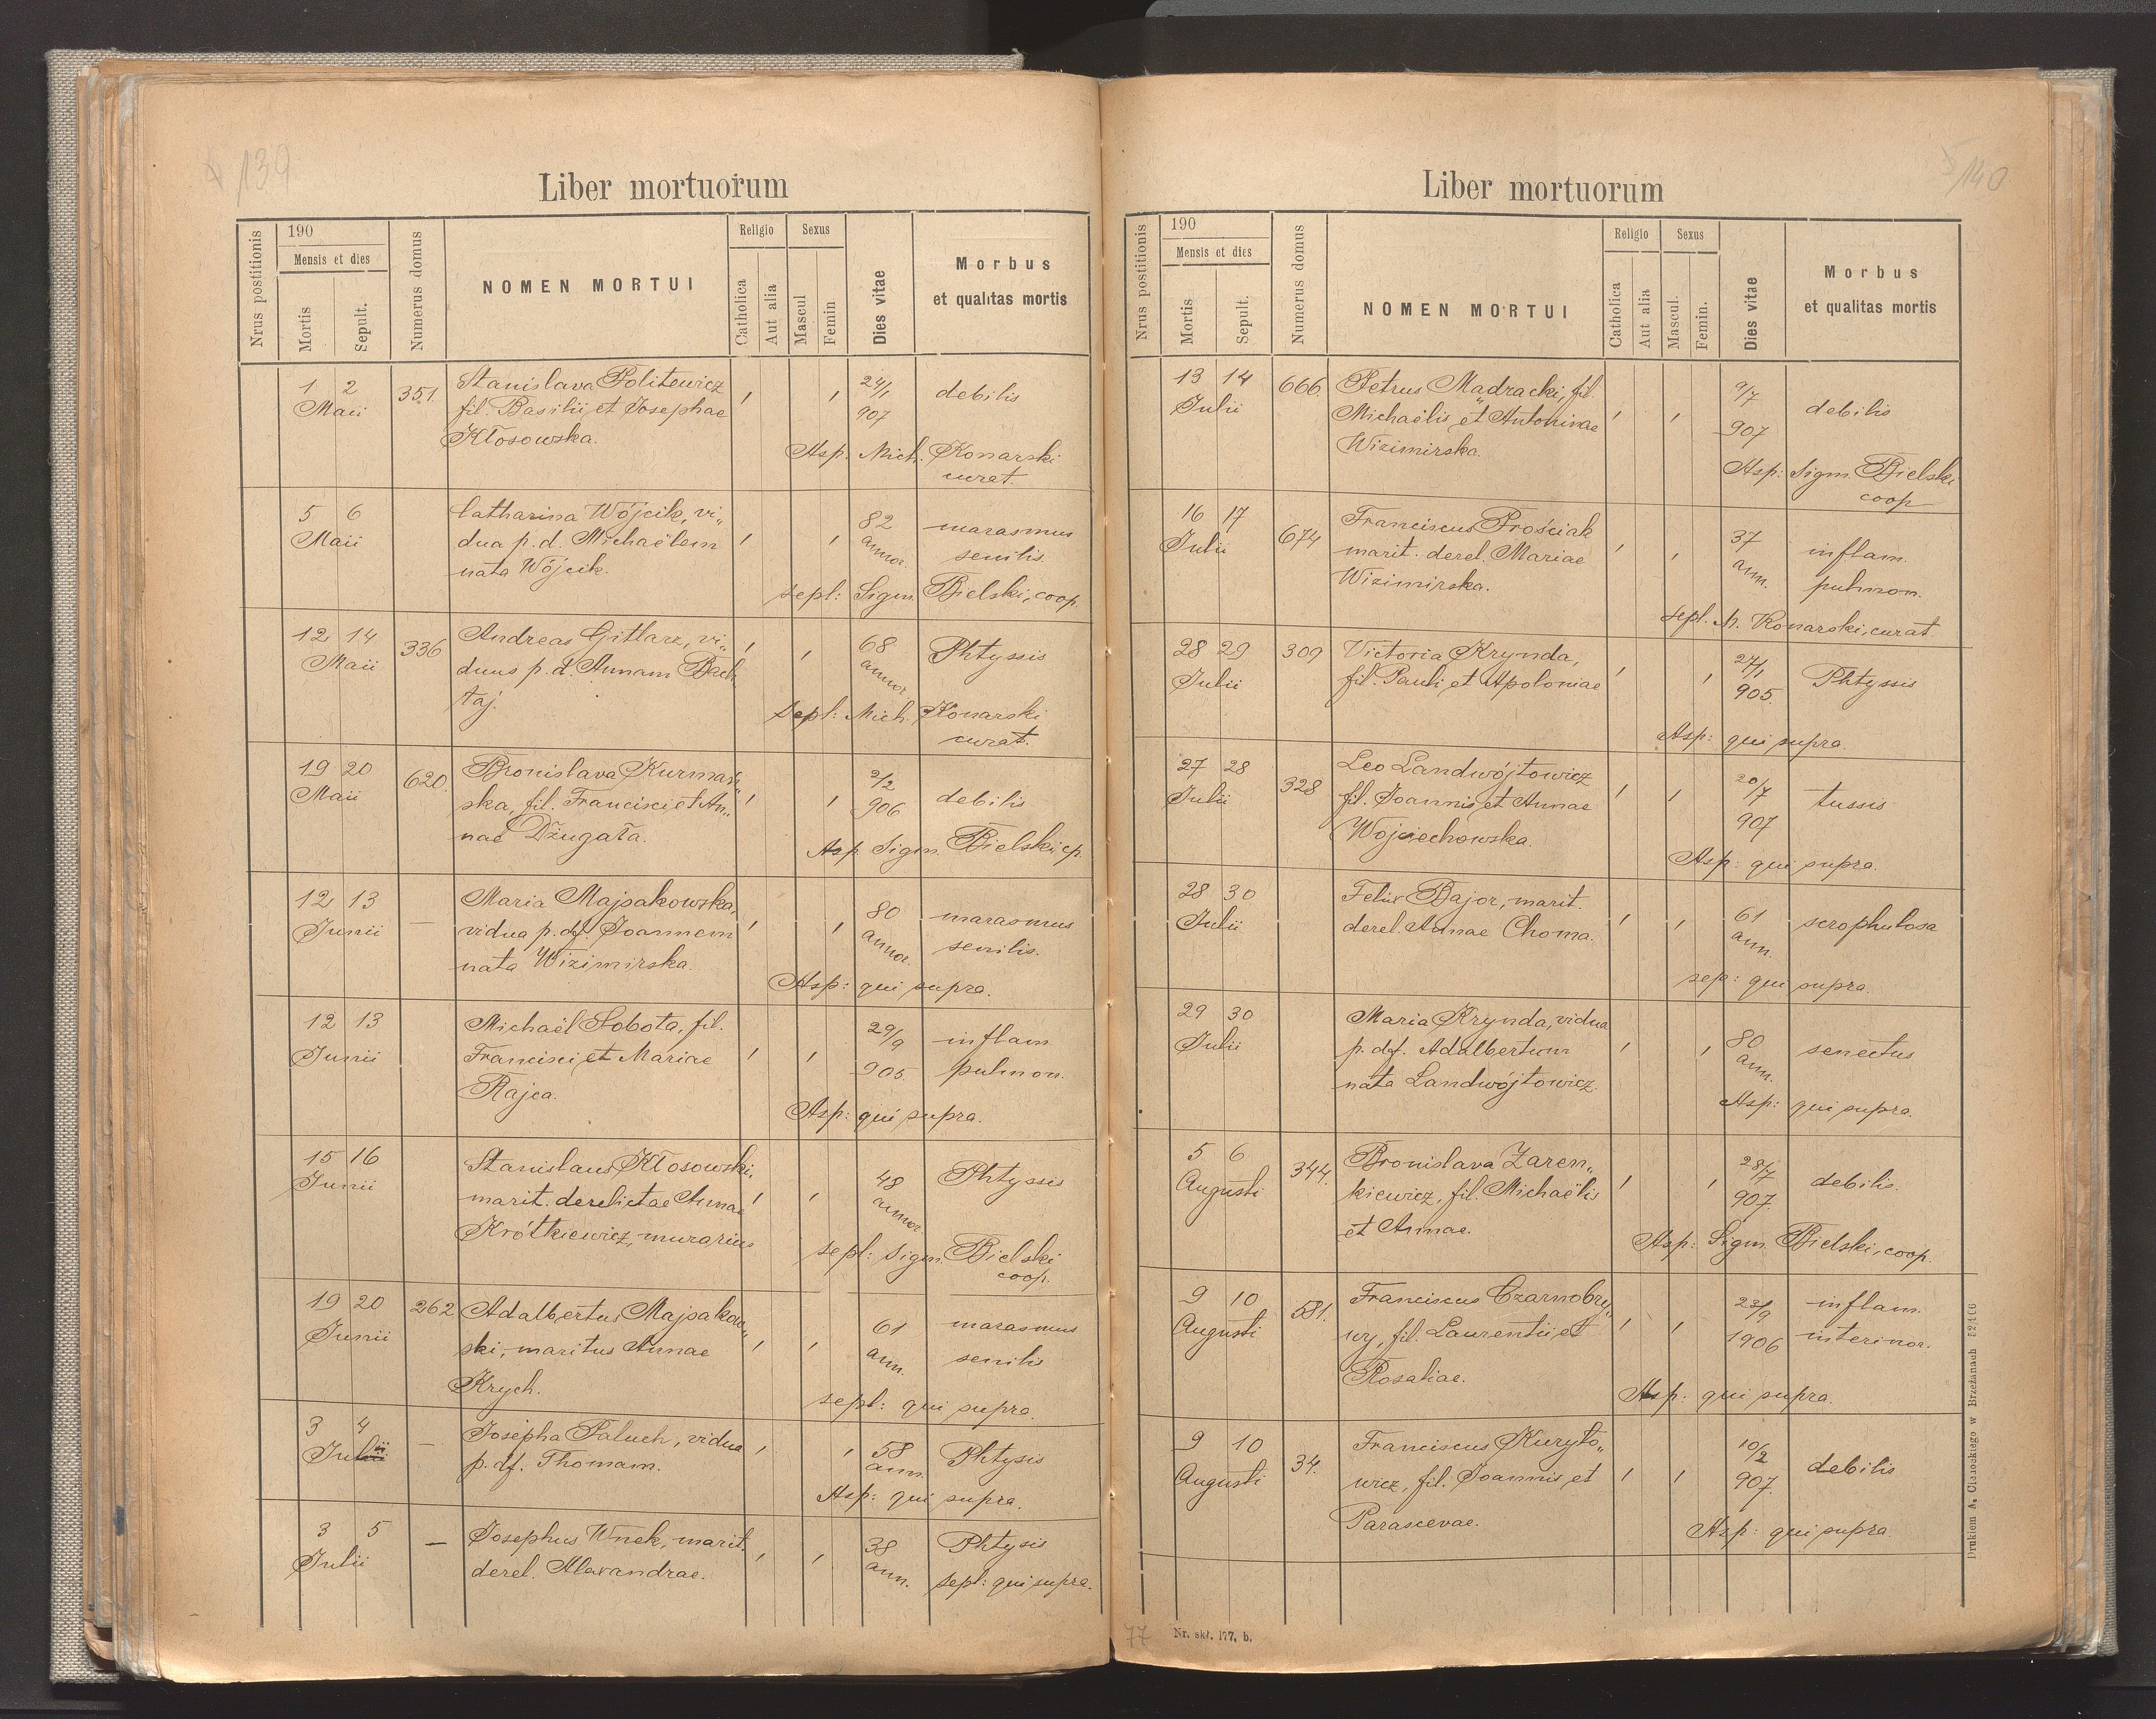 139
Liber mortuorum
Nrus postitionis
190
Mensis et dies
Mortis
Sepult.
Numerus domus
NOMEN MORTUI
Religio
Catholica
Aut alia
Sexus
Mascul
Femin
Dies vitae
Morbus
et qualitas mortis
1 2 351. Stanislava Politewicz ' ' 24/1 debilis
Maii fil. Basilii et Josephae 907
Kłosowska. Asp. Mich. Konarski
curat.
5 6 Catharina Wójcik, vi„ ' ' 82 marasmus
Maii dua p. d. Michaëlem annor. senilis.
nata Wójcik. sepl: Sigm. Bielski, coop.
12 14 336 Andreas Gitlarz, vi„ ' ' 68 Phtyssis
Maii duus p. d. Annam Bach„ annor.
taj. sepl: Mich. Konarski
curat.
19 20 620. Bronislava Kurmań„ ' ' 2/2 debilis
Maii ska, fil. Francisci et An„ 906
nae Dżugała. Asp. Sigm. Bielski cp.
12 13 — Maria Majsakowska, ' ' 80 marasmus
Junii vidua p. df. Joannem annor. senilis.
nata Wizimirska. Asp: qui supra.
12 13 Michaël Sobota, fil. ' ' 29/9 inflam.
Junii Francisci et Mariae 905. pulmon.
Rajca. Asp: qui supra.
15 16 Stanislaus Kłosowski, ' ' 48 Phtyssis
Junii marit. derelictae Annae annor.
Krótkiewicz, murarius sepl: Sigm. Bielski
coop.
19 20 262 Adalbertus Majsakow„ ' ' 61 marasmus
Junii ski, maritus Annae ann. senilis
Krych. sepl: qui supra.
3 4 — Josepha Paluch, vidua ' ' 58 Phtysis
Julii p. df. Thomam. ann.
Asp: qui supra.
3 5 — Josephus Wnek, marit. ' ' 38 Phtysis
Julii derel. Alexandrae. ann. sepl: qui supra.
140
Liber mortuorum
Nrus postitionis
190
Mensis et dies
Mortis
Sepult.
Numerus domus
NOMEN MORTUI
Religio
Catholica
Aut alia
Sexus
Mascul.
Femin.
Dies vitae
Morbus
et qualitas mortis
13 14 666. Petrus Mądracki, fil. 9/7
Julii Michaëlis et Antoninae ' ' 907 debilis
Wizimirska. Asp: Sigm. Bielski
coop
16 17 674 Franciscus Prościak ' ' 37 inflam.
Julii marit. derel. Mariae ann. pulmon.
Wizimirska.
sepl. M. Konarski, curat.
28 29 309 Victoria Krynda, ' ' 27/1 Phtyssis
Julii fil. Pauli et Apoloniae 905.
Asp: qui supra.
27 28 328 Leo Landwójtowicz ' ' 20/7 tussis
Julii fil. Joannis et Annae 907
Wojciechowska. Asp: qui supra.
28 30 Felix Bajor, marit. ' ' 61 scrophulosa
Julii derel. Annae Choma. ann.
sep: qui supra.
29 30 Maria Krynda, vidua ' ' 80 senectus
Julii p. df. Adalbertum ann.
nata Landwójtowicz. Asp: qui supra.
5 6 344. Bronislava Zaren„ ' ' 28/7 debilis.
Augusti kiewicz, fil. Michaëlis 907.
et Annae. Asp: Sigm. Bielski, coop.
9 10 581. Franciscus Czarnobry„ ' ' 23/9 inflam.
Augusti wy, fil. Laurentii et 1906 interinor.
Rosaliae. Asp: qui supra.
9 10 34. Franciscus Kuryło„ ' ' 10/2 debilis
Augusti wicz, fil. Joannis et 907.
Parascevae. Asp: qui supra.
Drukiem A. Cianoskiego w Brzeżanach
77
Nr. skł. 177, b.